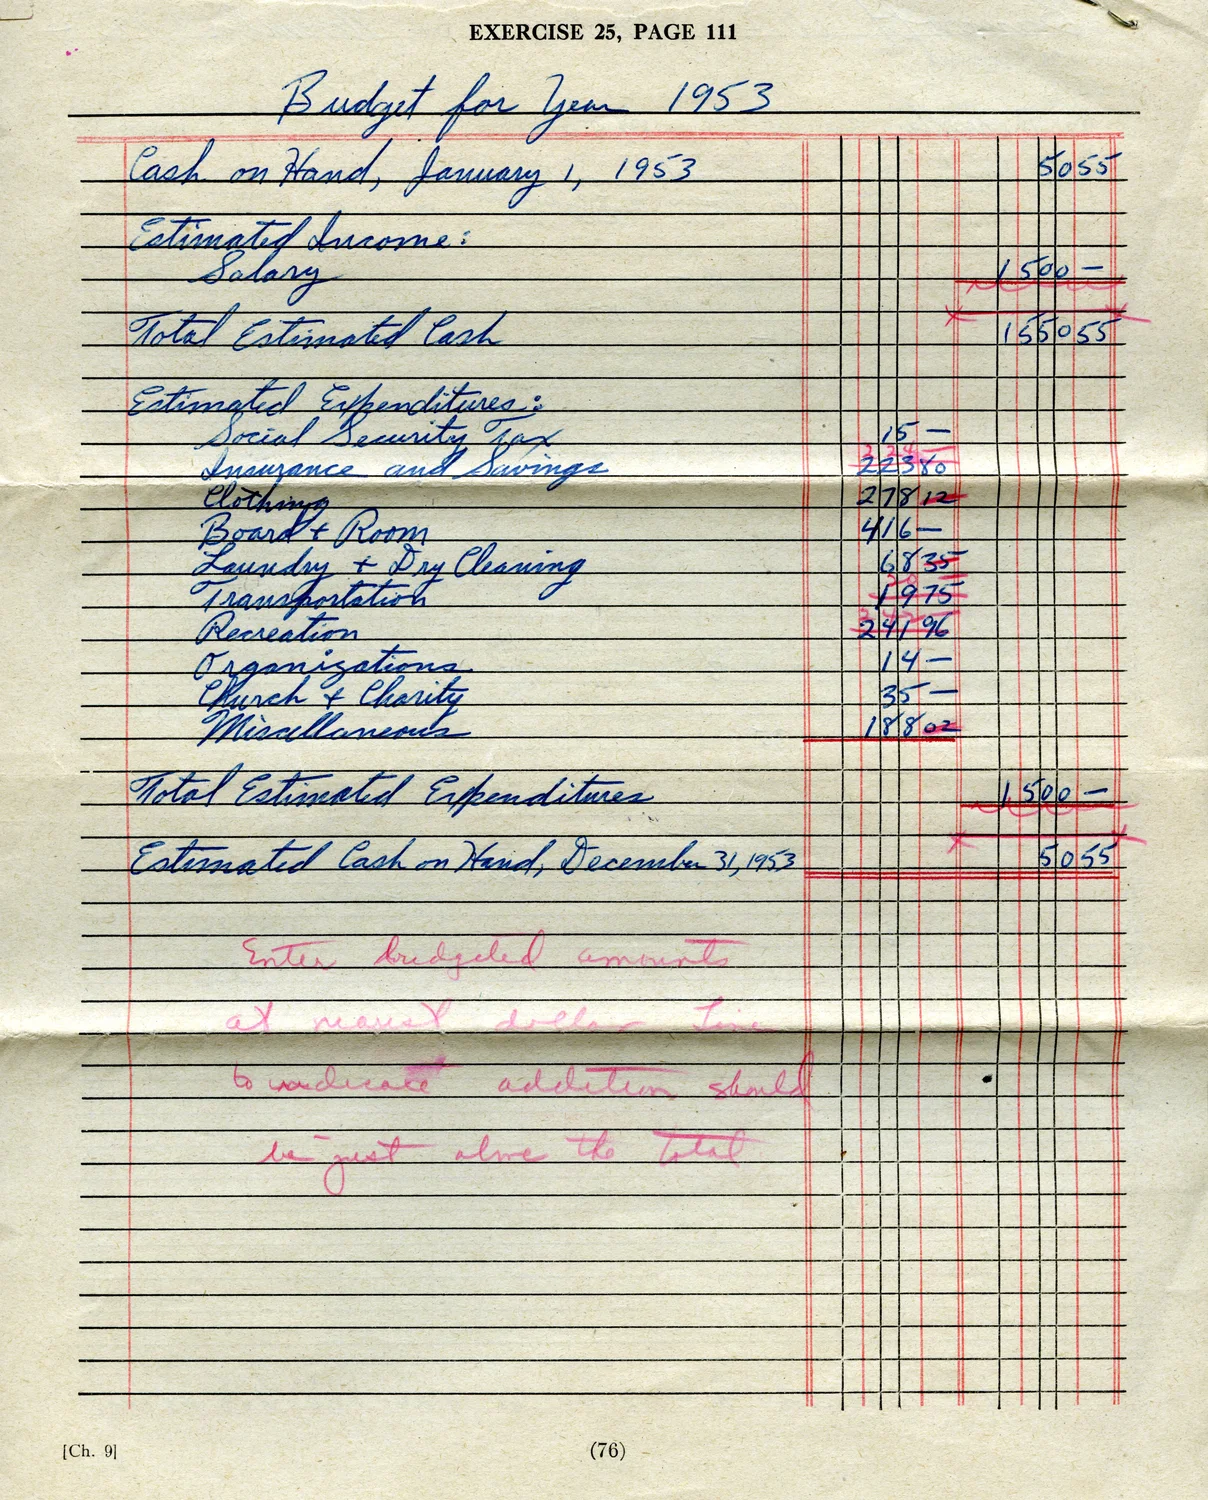 EXERCISE 25, PAGE 111
Budget for Year 1953
Cash on Hand, January 1, 1953 5055
Estimated Income:
Salary 1500 —
Total Estimated Cash 155055
Estimated Expenditures:
Social Security Tax 15 —
Insurance and Savings 22380
Clothing 27812
Board + Room 416 —
Laundry + Dry Cleaning 6835
Transportation 1975
Recreation 24196
Organizations 14 —
Church + Charity 35 —
Miscellaneous 18802
Total Estimated Expenditures 1500 —
Estimated Cash on Hand, December 31, 1953 5055
Enter budgeted amounts
at nearest dollar Line
to indicate addition should
be just above the Total
[Ch. 9] (76)